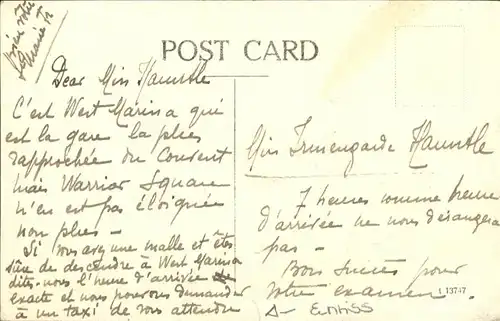 Bien vôtre
POST CARD
Dear Miss Hauntle
C'est West Marina qui
est la gare la plus
rapprochée du Couvent
mais Warrior Square
n'en est pas éloignée
non plus —
Si vous avez une malle et êtes
sûre de descendre à West Marina
dites-nous l'heure d'arrivée
exacte et nous pourrons demander
à un taxi de vous attendre
Miss Irmengarde Hauntle
7 heures comme heure
d'arrivée ne nous dérangera
pas —
Bons succès pour
votre examen.
13747